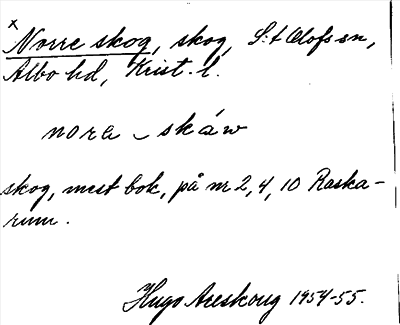 x
Norre skog, skog, S:t Olofs sn,
Albo hd, Krist. l.
nora - skáw
skog, mest bok, på nr 2, 4, 10 Raska-
rum.
Hugo Areskoug 1954-55.